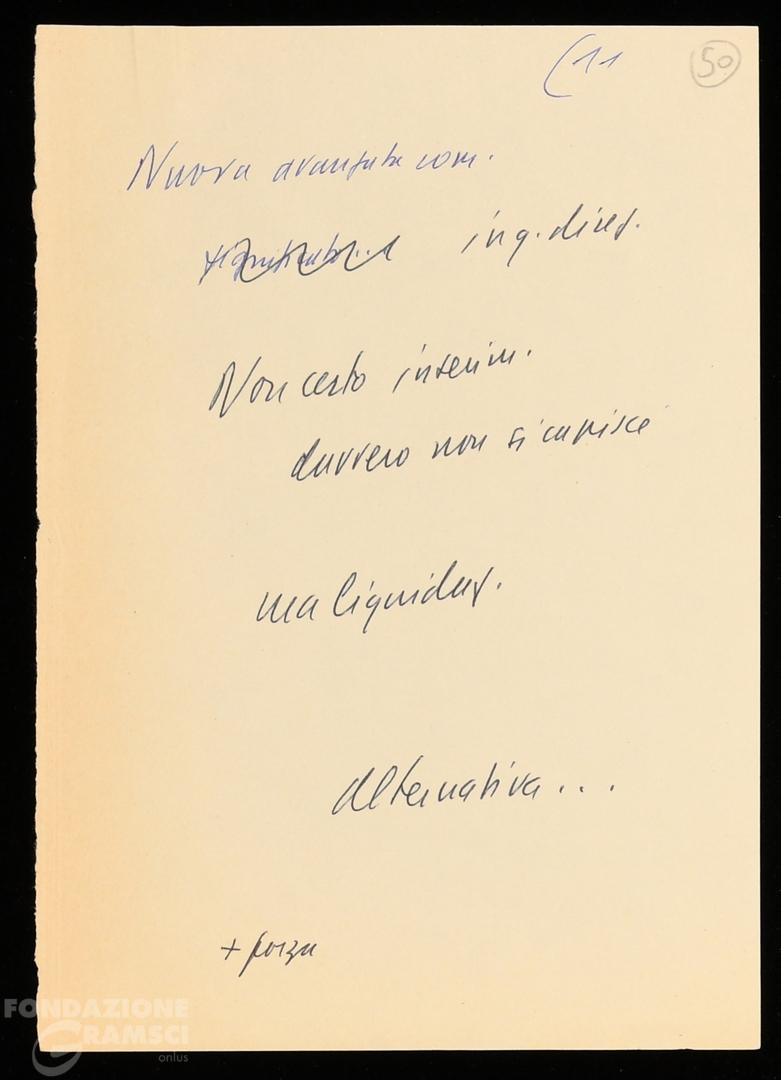 (11 50
Nuova avanzata com.
significato... ing. direz.
Non certo interim.
davvero non si capisce
ma liquidaz.
alternativa...
+ forza
FONDAZIONE
GRAMSCI
onlus